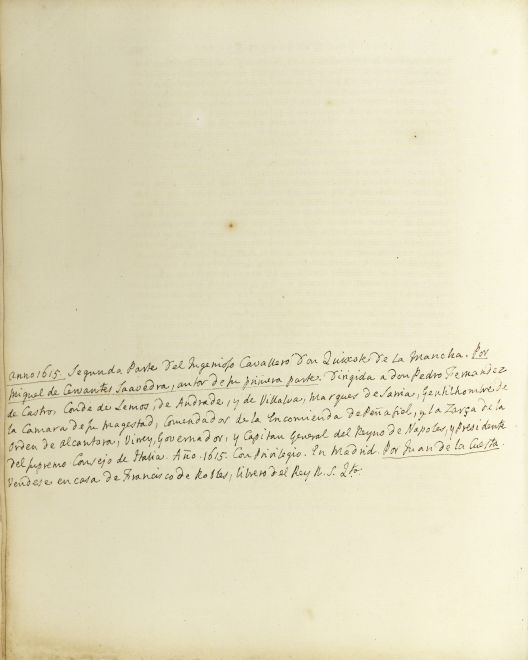 anno 1615. Segunda Parte Del Ingenioso Cavallero Don Quixote De La Mancha. Por
Miguel de Cervantes Saavedra, autor de su primera parte. Dirigida a don Pedro Fernandez
de Castro, Conde de Lemos, de Andrade, y de Villalva, Marques de Sarria, Gentilhombre de
la Camara de su Magestad, Comendador de la Encomienda de Peñafiel, y la Zarza de la
Orden de Alcantara, Virey, Governador, y Capitan General del Reyno de Napoles, y Presidente
Del supremo Consejo de Italia. Año. 1615. Con Privilegio. En Madrid. Por Juan de la Cuesta.
Vendese en casa de Francisco de Robles, librero del Rey N. S. Qto.